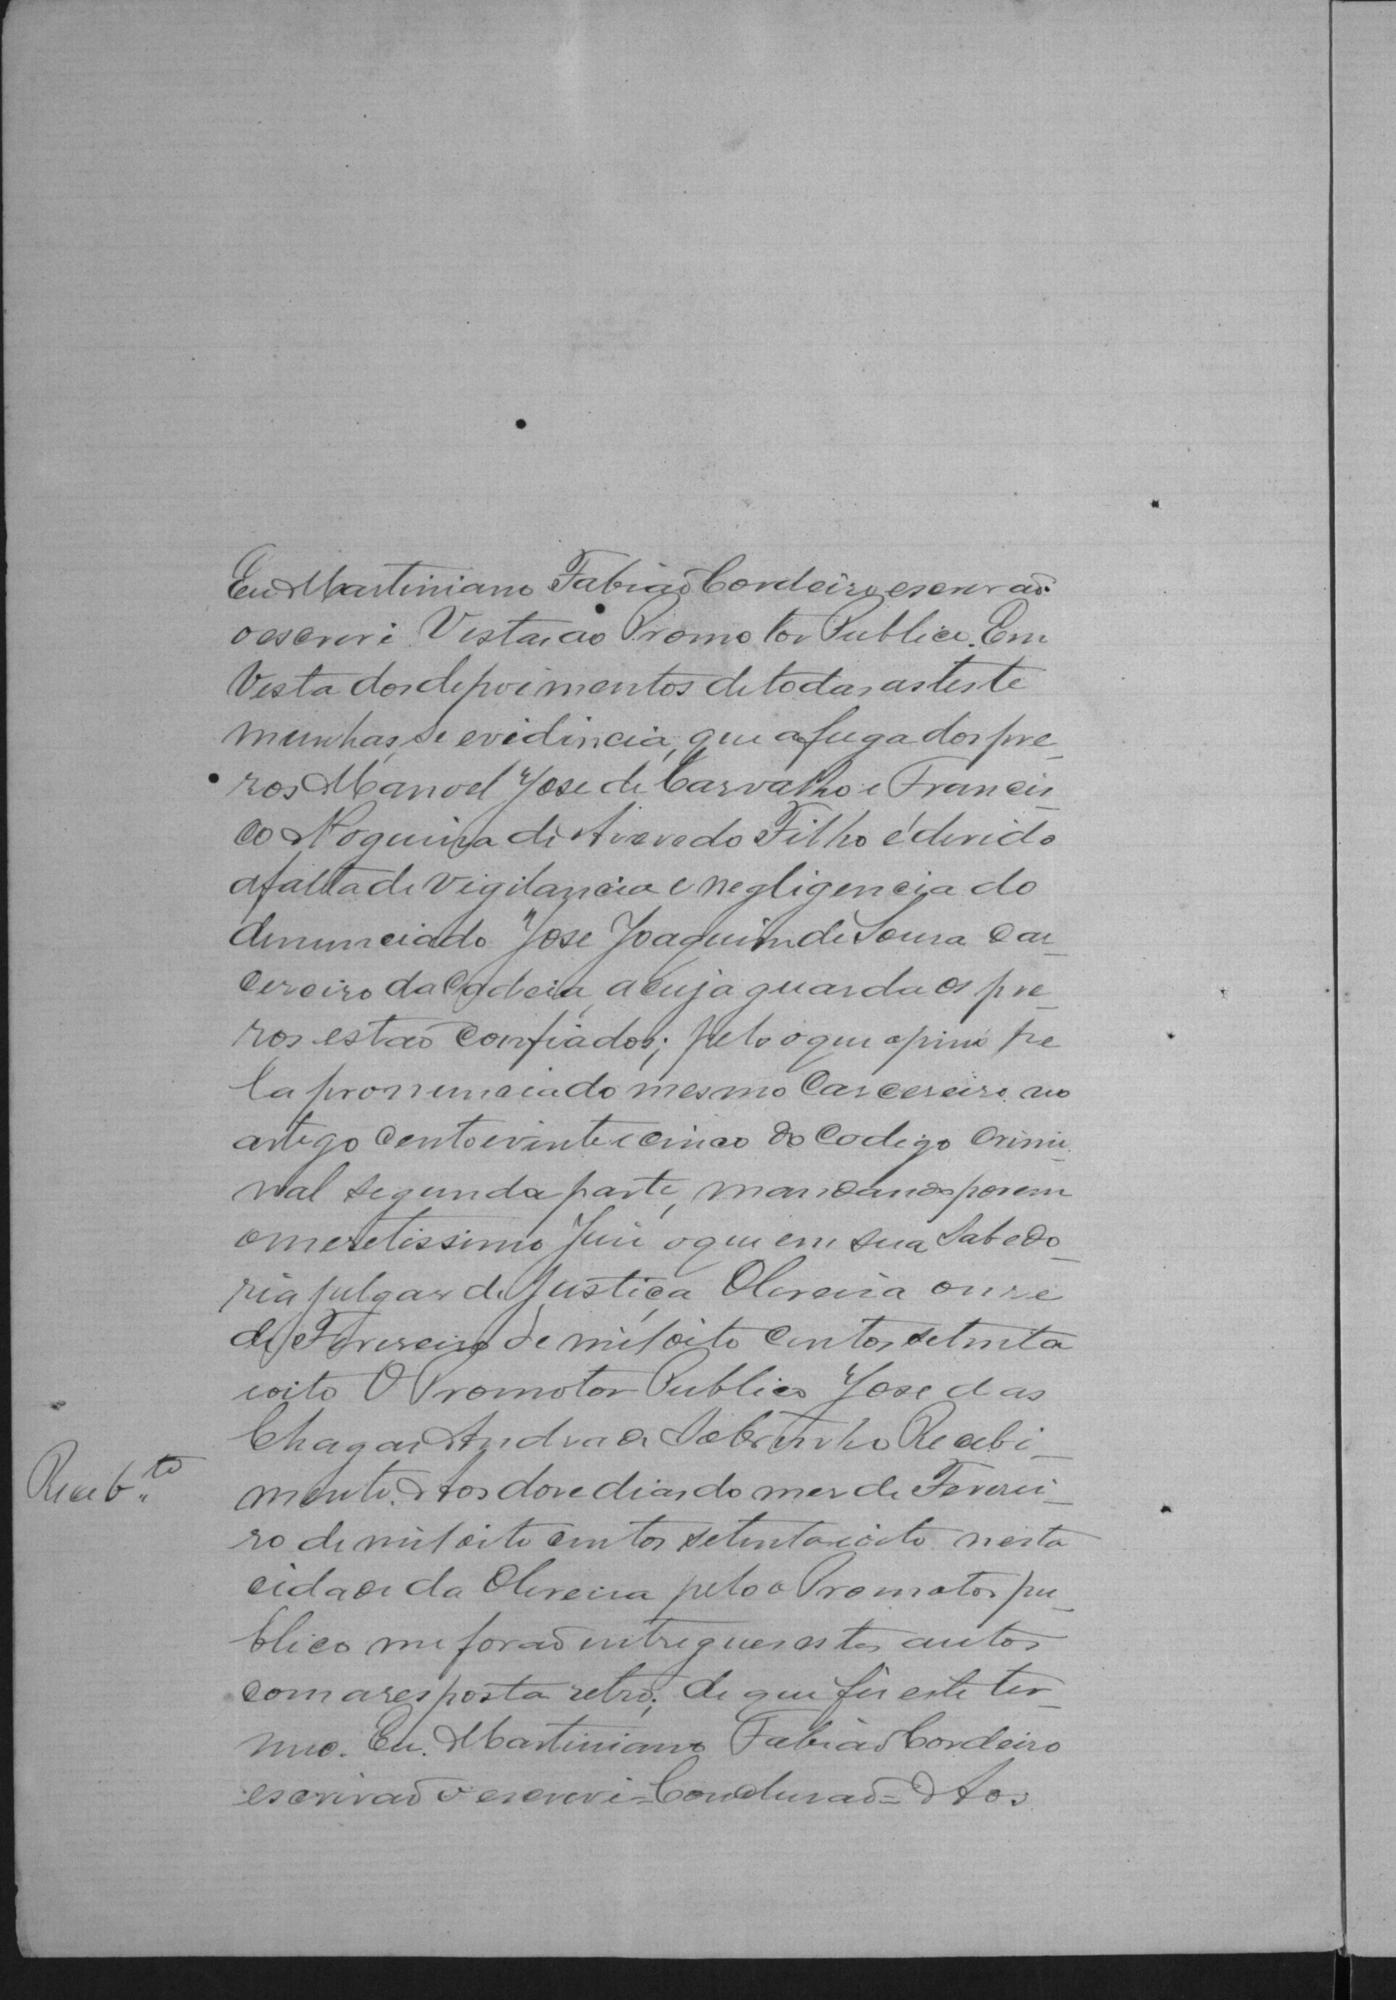 Eu Martiniano Fabiaõ Cordeiro escrivaõ
o escrevi Vista ao Promotor Publico. Em
Vesta dos depoimentos de todas as teste
munhas, se evidincia, que a fuga dos pre_
sos Manoel Jose de Carvalho e Francis_
co Nogueira de Asevedo Filho é devido
a falta de vigilancia e negligencia do
denunciado Jose Joaquim de Sousa Car_
cereiro da Cadeia, a cuja guarda os pre_
sos estaõ confiados; pelo o que opino pe
la pronuncia do mesmo Carcereiro no
artigo cento e vinte e cinco do Codigo Crimi_
nal segunda parte, mandando porem
o meretissimo Juis o que em sua Sabedo_
ria julgar de Justiça Oliveira onse
de Fevereiro de mil oito centos setenta
e oito O Promotor Publico Jose das
Chagas Andrade Sobrinho Recebi_
Receb.to
mento. Aos dose dias do mes de Feverei_
ro de mil oito centos setenta e oito nesta
cidade da Oliveira pelo o Promotor pu_
blico me foraõ entregues estes autos
com a resposta retro; de que fis este ter_
mo. Eu. Martiniano Fabiaõ Cordeiro
escrivaõ o escrevi = Conclusaõ = Aos